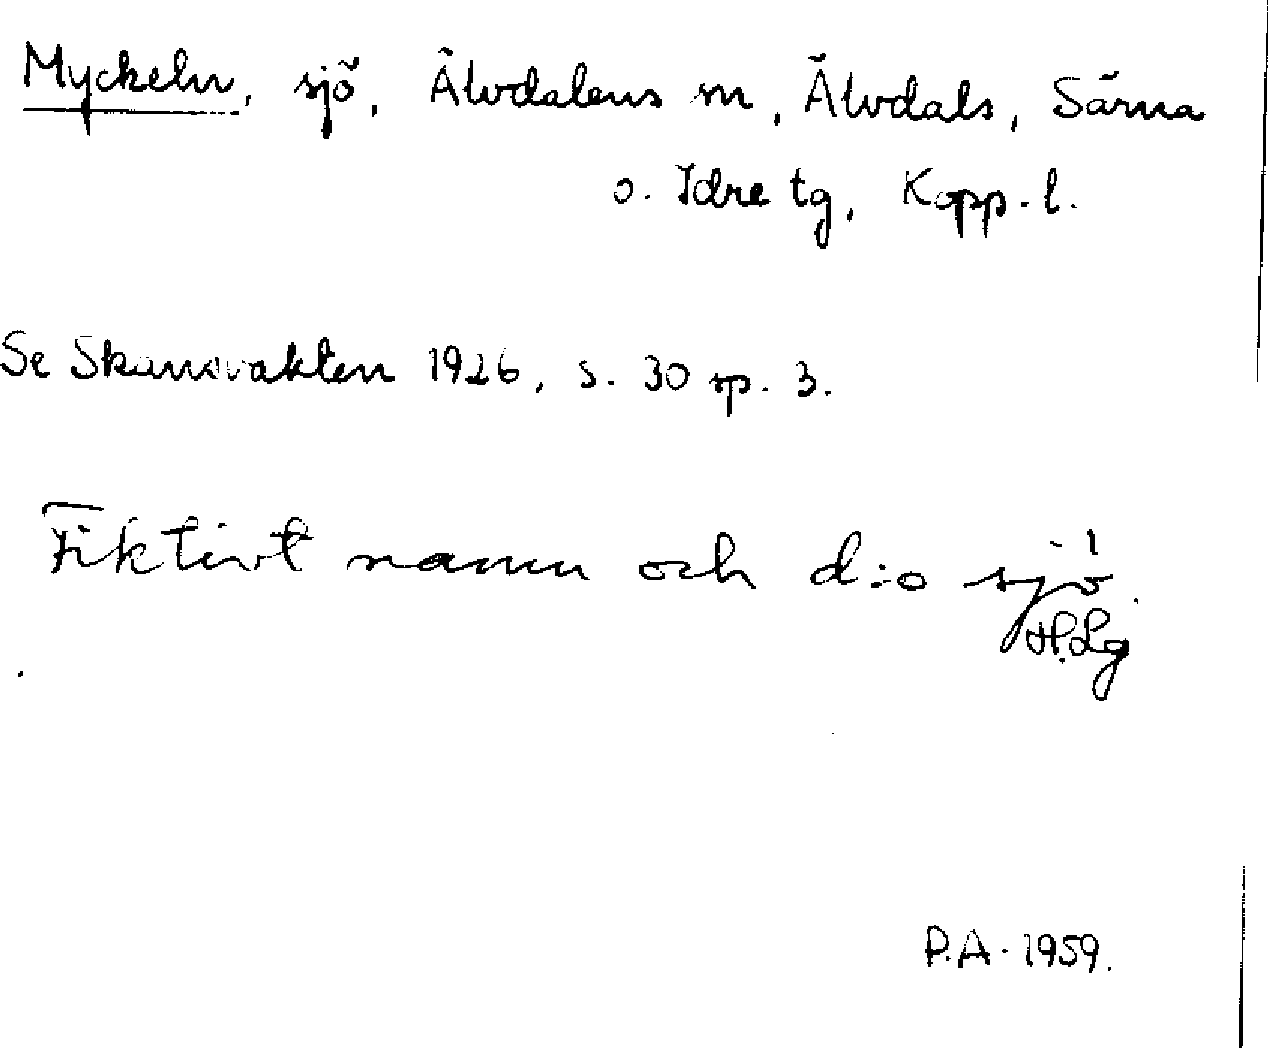 Myckeln, sjö, Älvdalens m, Älvdals, Särna
o. Idre tg, Kopp. l.
Se Skansvakten 1926, s. 30 sp. 3.
Fiktivt namn och d:o sjö.
H.Lg
P.A. 1959.